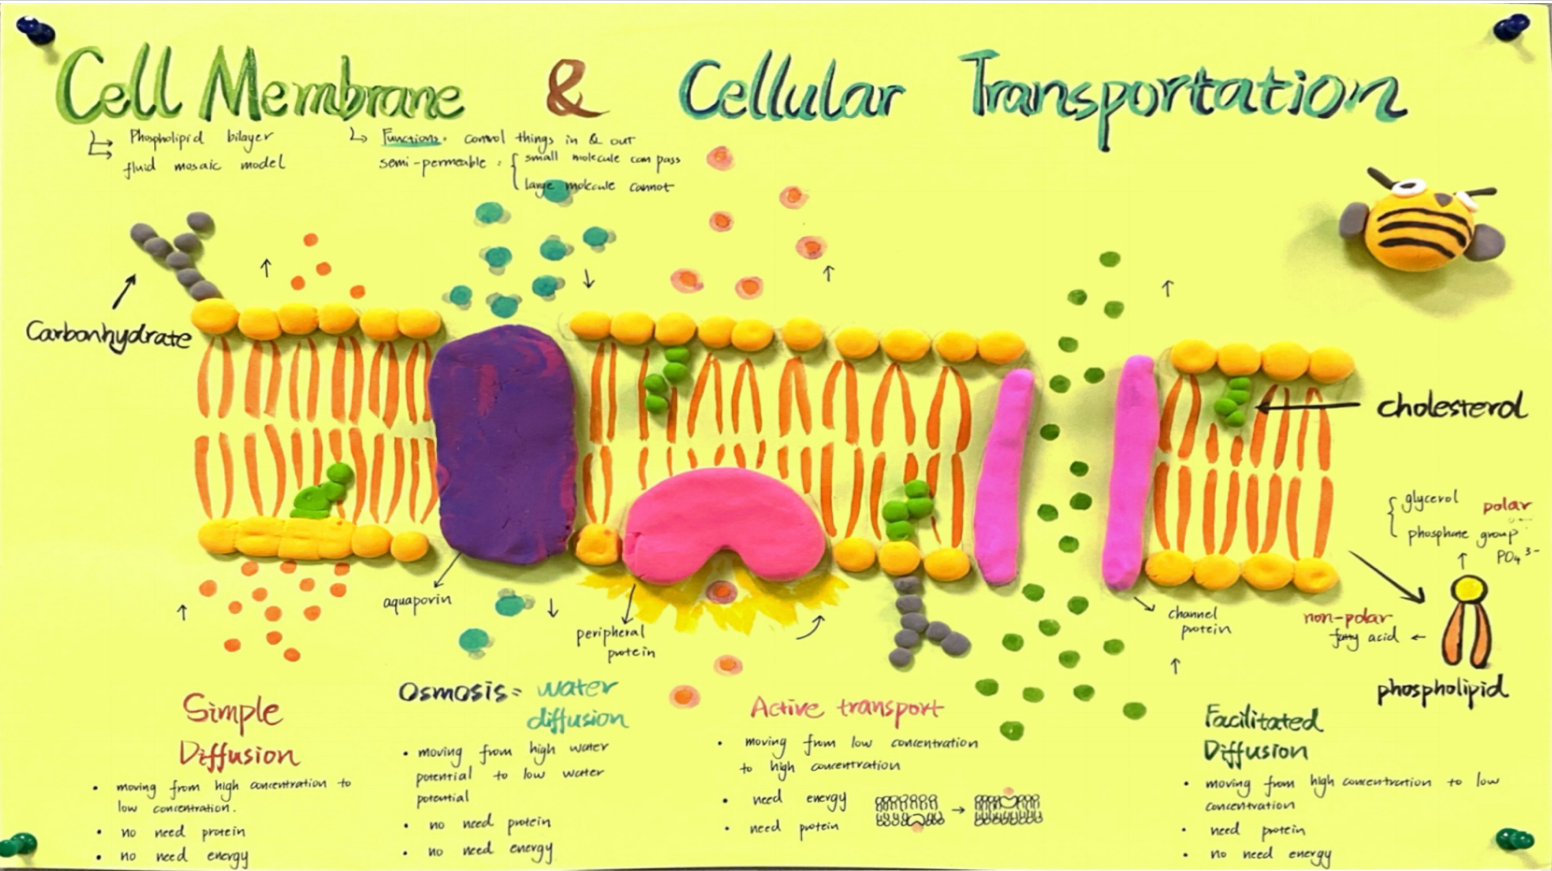 Cell Membrane & Cellular Transportation
Phospholipid bilayer
fluid mosaic model
Functions: control things in & out
semi-permeable: small molecule can pass
large molecule cannot
Carbonhydrate
cholesterol
glycerol polar
phosphane group
PO₄³⁻
aquaporin
peripheral
protein
channel
protein
non-polar
fatty acid
phospholipid
Simple
Diffusion
• moving from high concentration to
low concentration.
• no need protein
• no need energy
Osmosis = water
diffusion
• moving from high water
potential to low water
potential
• no need protein
• no need energy
Active transport
• moving from low concentration
to high concentration
• need energy
• need protein
Facilitated
Diffusion
• moving from high concentration to low
concentration
• need protein
• no need energy